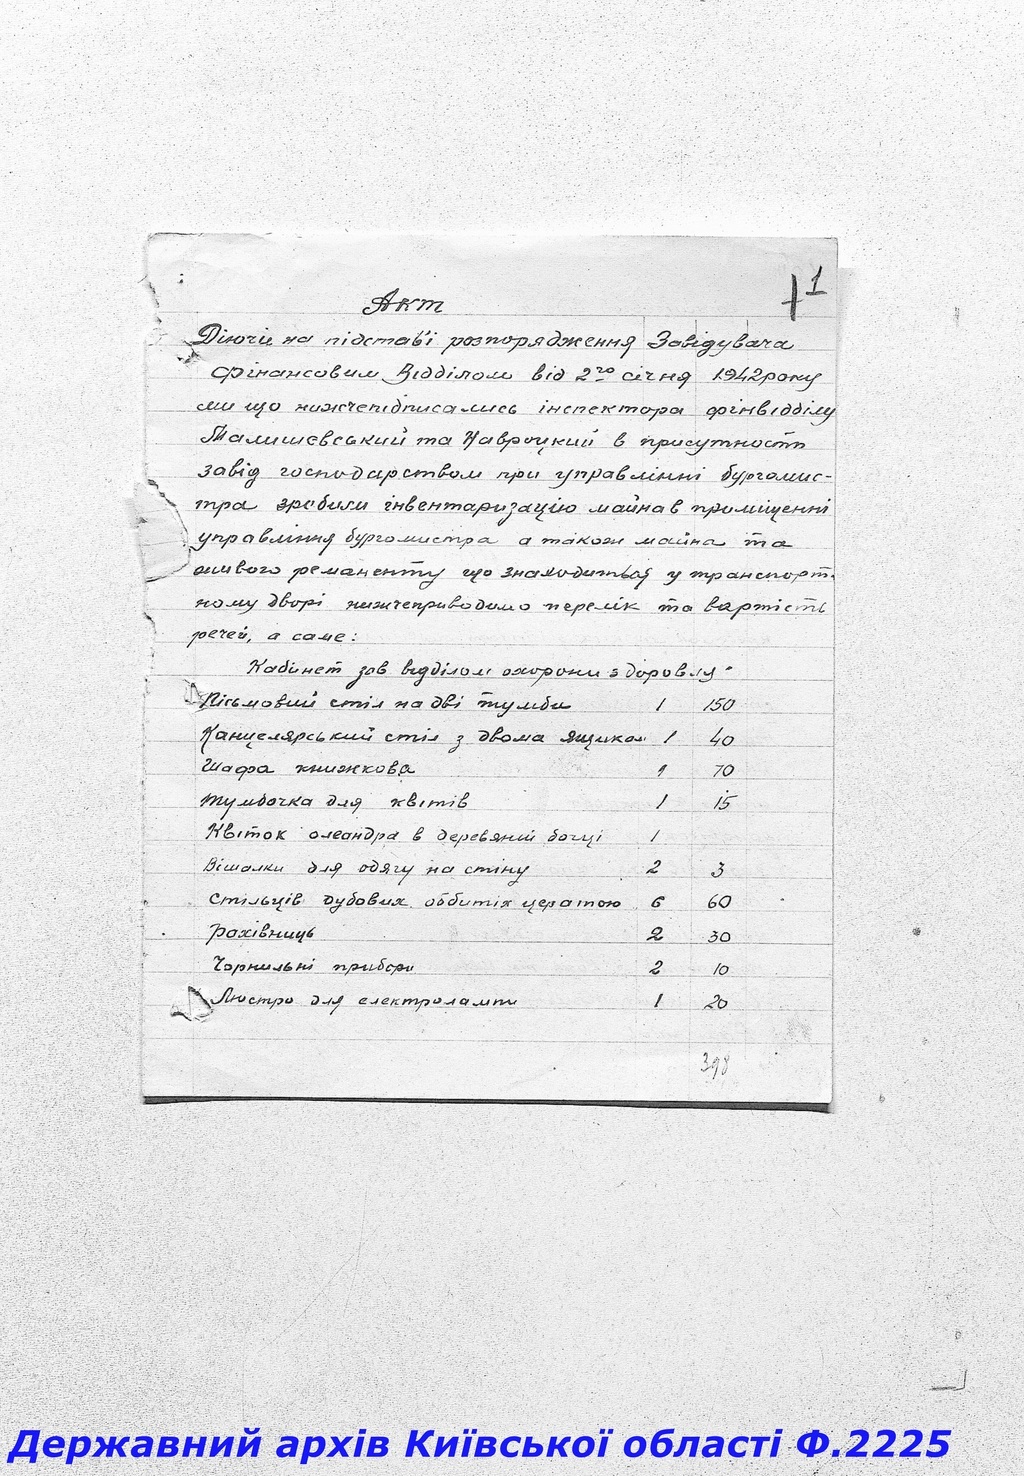 1
Акт
Діючи на підставі розпорядження Завідувача
Фінансовим Відділом від 2го січня 1942 року
ми що нижчепідписались інспектора фінвідділу
Малишевський та Навроцкий в присутность
завід господарством при управлінні бургомис-
тра зробили інвентаризацію майна в приміщенні
управління бургомистра а також майна та
живого ремаменту що знаходиться у транспорт-
ному дворі нижчеприводимо перелік та вартість
речей, а саме:
Кабінет зав відділом охорони здоровля
Пісьмовий стіл на дві тумби 1 150
Канцелярський стіл з двома ящиком 1 40
Шафа книжкова 1 70
Тумбочка для квітів 1 15
Квіток олеандра в деревяній бочці 1
Вішалки для одягу на стіну 2 3
Стільців дубових оббитіх цератою 6 60
Рахівниць 2 30
Чорнильні прибори 2 10
Люстра для електролампи 1 20
398
Державний архів Київської області Ф.2225